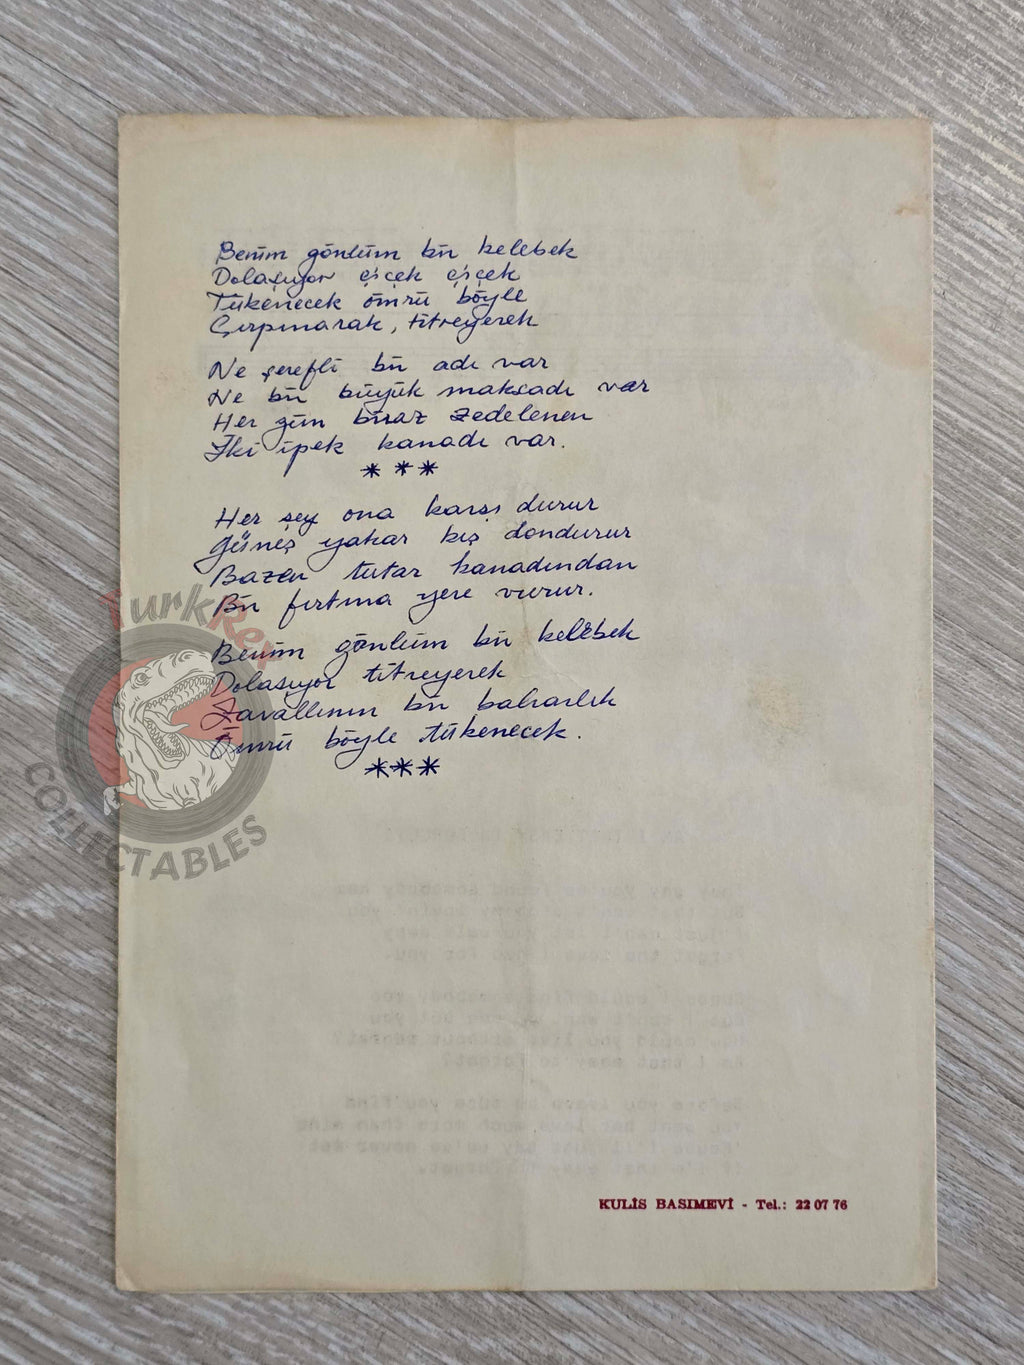 Benim gönlüm bir kelebek
Dolaşıyor çiçek çiçek
Tükenecek ömrü böyle
Çırpınarak, titreyerek
Ne şerefli bir adı var
Ne bir büyük maksadı var
Her gün biraz zedelenen
İki ipek kanadı var.
***
Her şey ona karşı durur
Güneş yakar kış dondurur
Bazen tutar kanadından
Bir fırtına yere vurur.
Benim gönlüm bir kelebek
Dolaşıyor titreyerek
Zavallının bir baharlık
Ömrü böyle tükenecek.
***
TurkRex
COLLECTABLES
KULİS BASIMEVİ - Tel.: 22 07 76